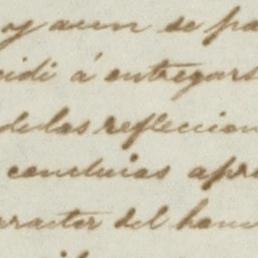 oy aun se pa
cidi á entregars
de las refleccion
concluias apr
aracter del hom